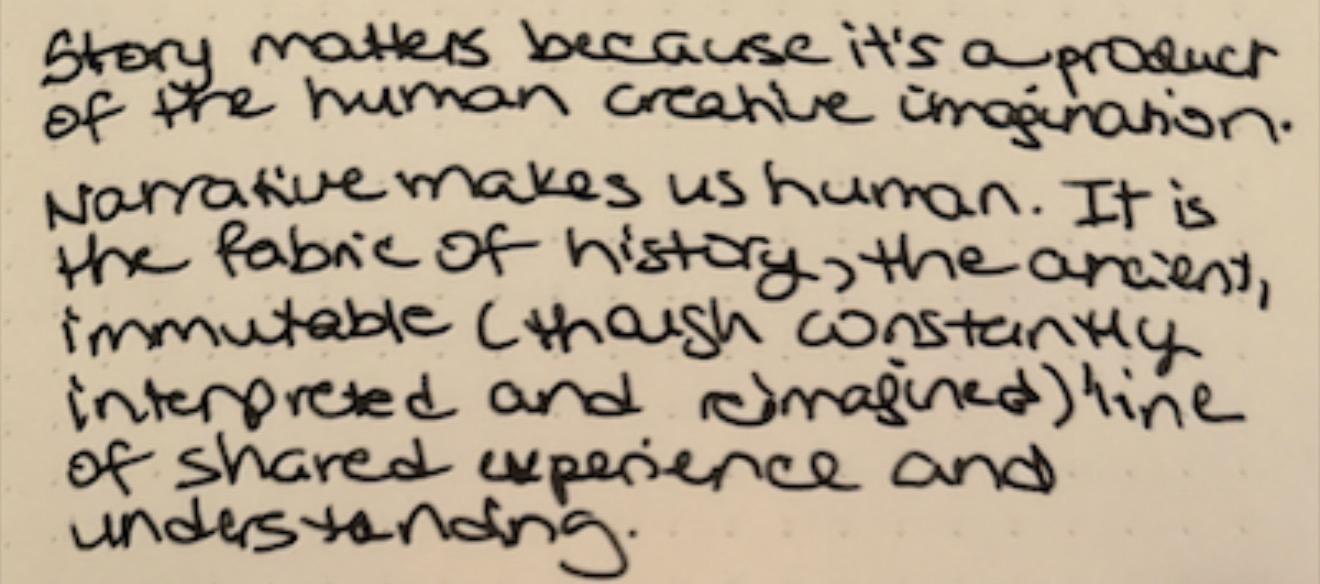 Story matters because it's a product
of the human creative imagination.
Narrative makes us human. It is
the fabric of history, the ancient,
immutable (though constantly
interpreted and reimagined) line
of shared experience and
understanding.